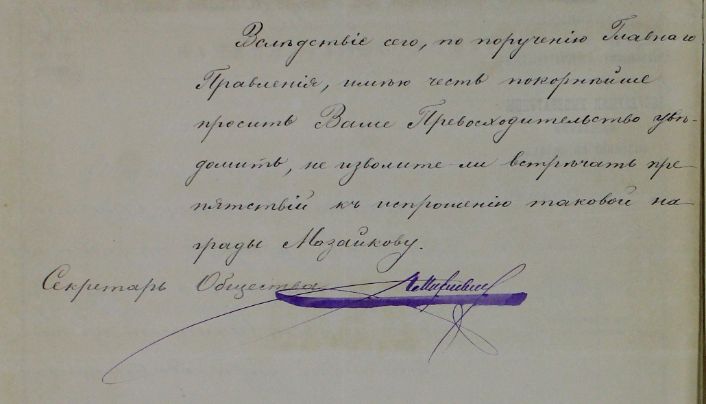 Вслѣдствіе сего, по порученію Главнаго
Правленія, имѣю честь покорнѣйше
просить Ваше Превосходительство увѣ-
домить, не изволите-ли встрѣчать пре-
пятствій къ испрошенію таковой на-
грады Мозайкову.
Секретарь Общества